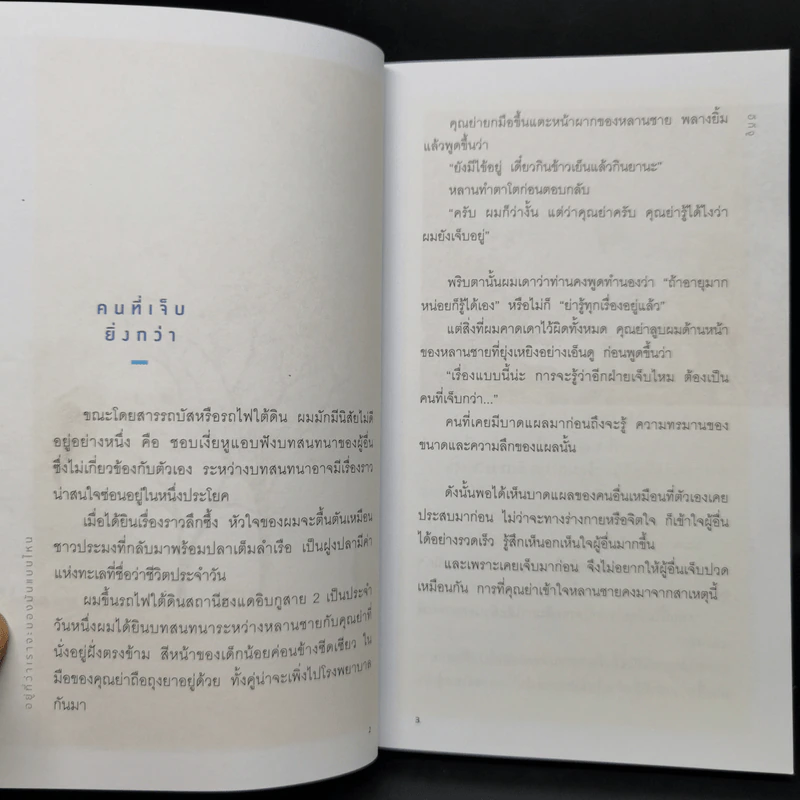 คนที่เจ็บ
ยิ่งกว่า
ขณะโดยสารรถบัสหรือรถไฟใต้ดิน ผมมักมีนิสัยไม่ดี
อยู่อย่างหนึ่ง คือ ชอบเงี่ยหูแอบฟังบทสนทนาของผู้อื่น
ซึ่งไม่เกี่ยวข้องกับตัวเอง ระหว่างบทสนทนาอาจมีเรื่องราว
น่าสนใจซ่อนอยู่ในหนึ่งประโยค
เมื่อได้ยินเรื่องราวลึกซึ้ง หัวใจของผมจะตื้นตันเหมือน
ชาวประมงที่กลับมาพร้อมปลาเต็มลำเรือ เป็นฝูงปลามีค่า
แห่งทะเลที่ชื่อว่าชีวิตประจำวัน
ผมขึ้นรถไฟใต้ดินสถานีฮงแดอิบกูสาย 2 เป็นประจำ
วันหนึ่งผมได้ยินบทสนทนาระหว่างหลานชายกับคุณย่าที่
นั่งอยู่ฝั่งตรงข้าม สีหน้าของเด็กน้อยค่อนข้างซีดเซียว ใน
มือของคุณย่าถือถุงยาอยู่ด้วย ทั้งคู่น่าจะเพิ่งไปโรงพยาบาล
กันมา
อยู่ที่ว่าเราจะมองมันแบบไหน
2
คุณย่ายกมือขึ้นแตะหน้าผากของหลานชาย พลางยิ้ม
แล้วพูดขึ้นว่า
"ยังมีไข้อยู่ เดี๋ยวกินข้าวเย็นแล้วกินยานะ"
หลานทำตาโตก่อนตอบกลับ
"ครับ ผมก็ว่างั้น แต่ว่าคุณย่าครับ คุณย่ารู้ได้ไงว่า
ผมยังเจ็บอยู่"
พริบตานั้นผมเดาว่าท่านคงพูดทำนองว่า "ถ้าอายุมาก
หน่อยก็รู้ได้เอง" หรือไม่ก็ "ย่ารู้ทุกเรื่องอยู่แล้ว"
แต่สิ่งที่ผมคาดเดาไว้ผิดทั้งหมด คุณย่าลูบผมด้านหน้า
ของหลานชายที่ยุ่งเหยิงอย่างเอ็นดู ก่อนพูดขึ้นว่า
"เรื่องแบบนี้น่ะ การจะรู้ว่าอีกฝ่ายเจ็บไหม ต้องเป็น
คนที่เจ็บกว่า..."
คนที่เคยมีบาดแผลมาก่อนถึงจะรู้ ความทรมานของ
ขนาดและความลึกของแผลนั้น
ดังนั้นพอได้เห็นบาดแผลของคนอื่นเหมือนที่ตัวเองเคย
ประสบมาก่อน ไม่ว่าจะทางร่างกายหรือจิตใจ ก็เข้าใจผู้อื่น
ได้อย่างรวดเร็ว รู้สึกเห็นอกเห็นใจผู้อื่นมากขึ้น
และเพราะเคยเจ็บมาก่อน จึงไม่อยากให้ผู้อื่นเจ็บปวด
เหมือนกัน การที่คุณย่าเข้าใจหลานชายคงมาจากสาเหตุนี้
3